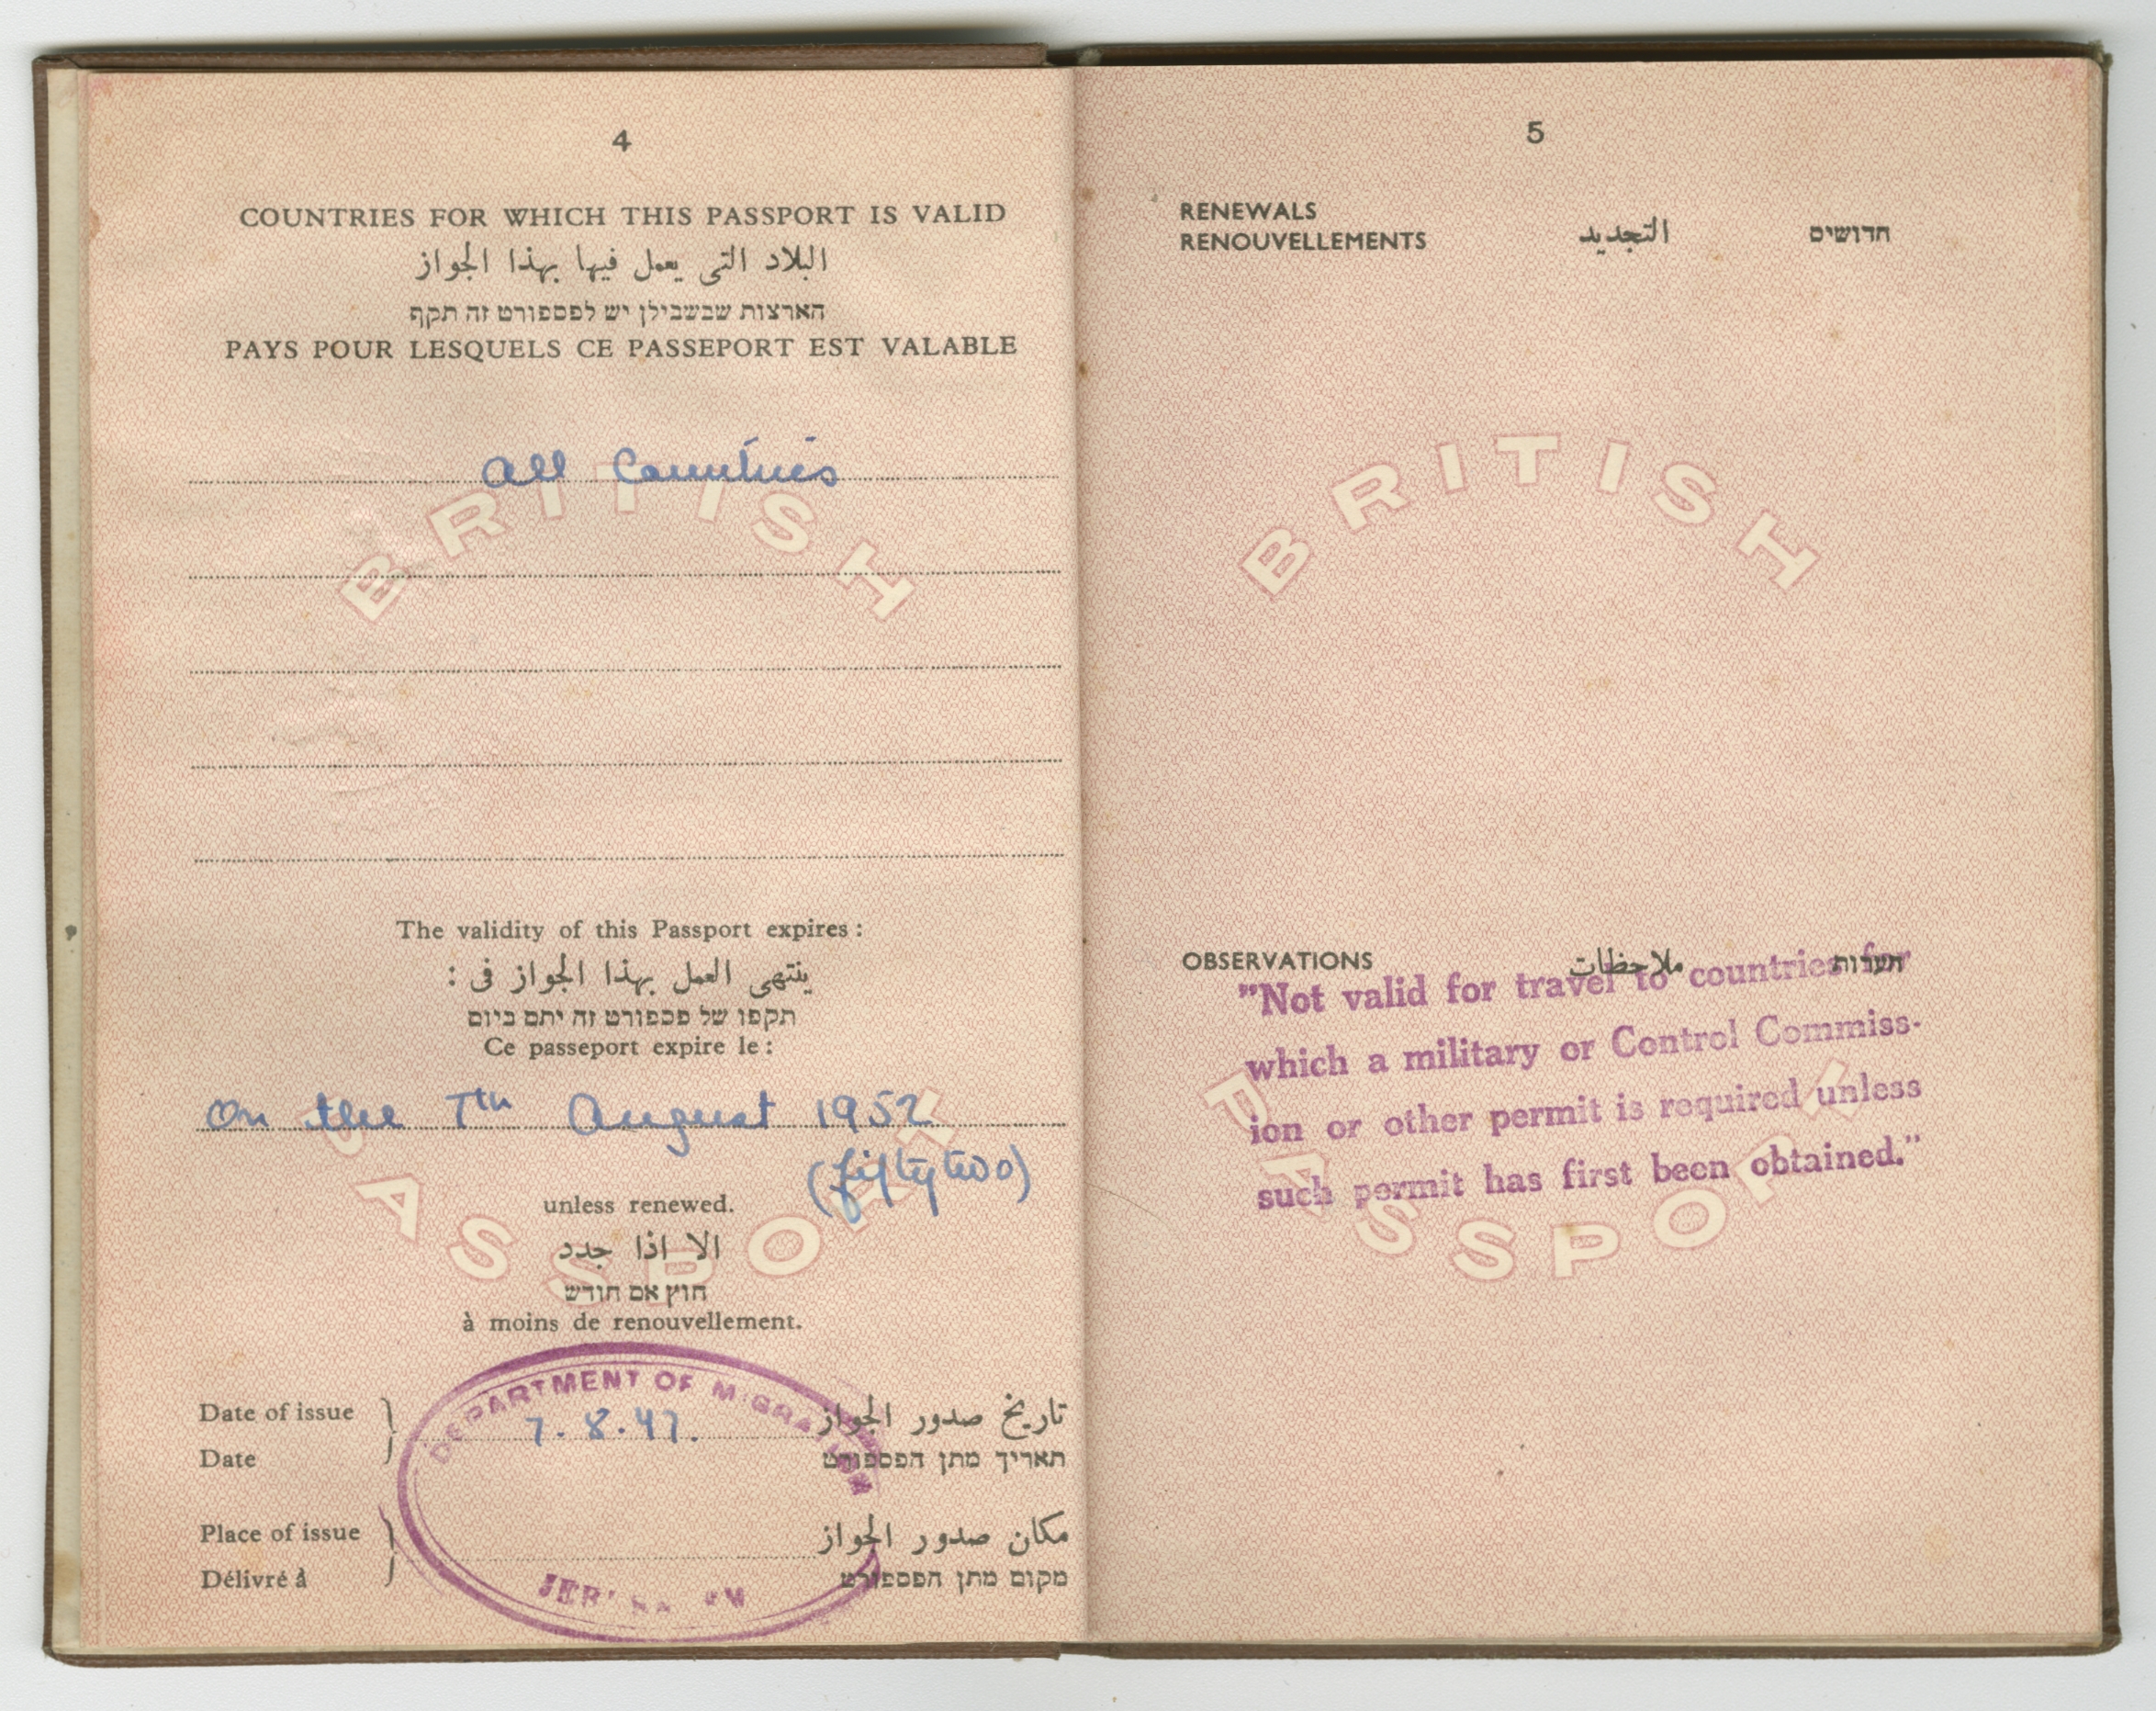 4
COUNTRIES FOR WHICH THIS PASSPORT IS VALID
البلاد التى يعمل فيها بهذا الجواز
הארצות שבשבילן יש לפספורט זה תקף
PAYS POUR LESQUELS CE PASSEPORT EST VALABLE
All Countries
BRITISH
The validity of this Passport expires :
ينتهى العمل بهذا الجواز فى :
תקפו של פספורט זה יתם ביום
Ce passeport expire le :
On the 7th August 1952
(fifty two)
unless renewed.
الا اذا جدد
חוץ אם חודש
à moins de renouvellement.
PASSPORT
DEPARTMENT OF MIGRATION
Date of issue
7.8.47.
تاريخ صدور الجواز
Date
תאריך מתן הפספורט
Place of issue
مكان صدور الجواز
Délivré à
מקום מתן הפספורט
JERUSALEM
5
RENEWALS
RENOUVELLEMENTS
التجديد
חדושים
BRITISH
OBSERVATIONS
ملاحظات
הערות
"Not valid for travel to countries for
which a military or Control Commiss-
ion or other permit is required unless
such permit has first been obtained."
PASSPORT